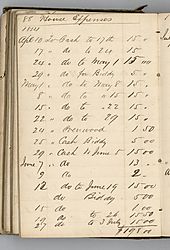 88 House Expenses
1844
Apl 10 To Cash to 17th 15 0
17 " do to 24 15
24 do to May 1 15 00
29 do for Biddy 5
May 1 do to May 8 15
8 do to 15 15
15 do to 22 15
22 do to 29 15
24 1 50
25 Cash Biddy 5 00
29 Cash to June 5 15 00
June 7 do 13
9 do 2
12 do to June 19 15 00
do Biddy 5 00
15 do 1 00
19 do to 26 15 50
27 do to 3 July 15 00